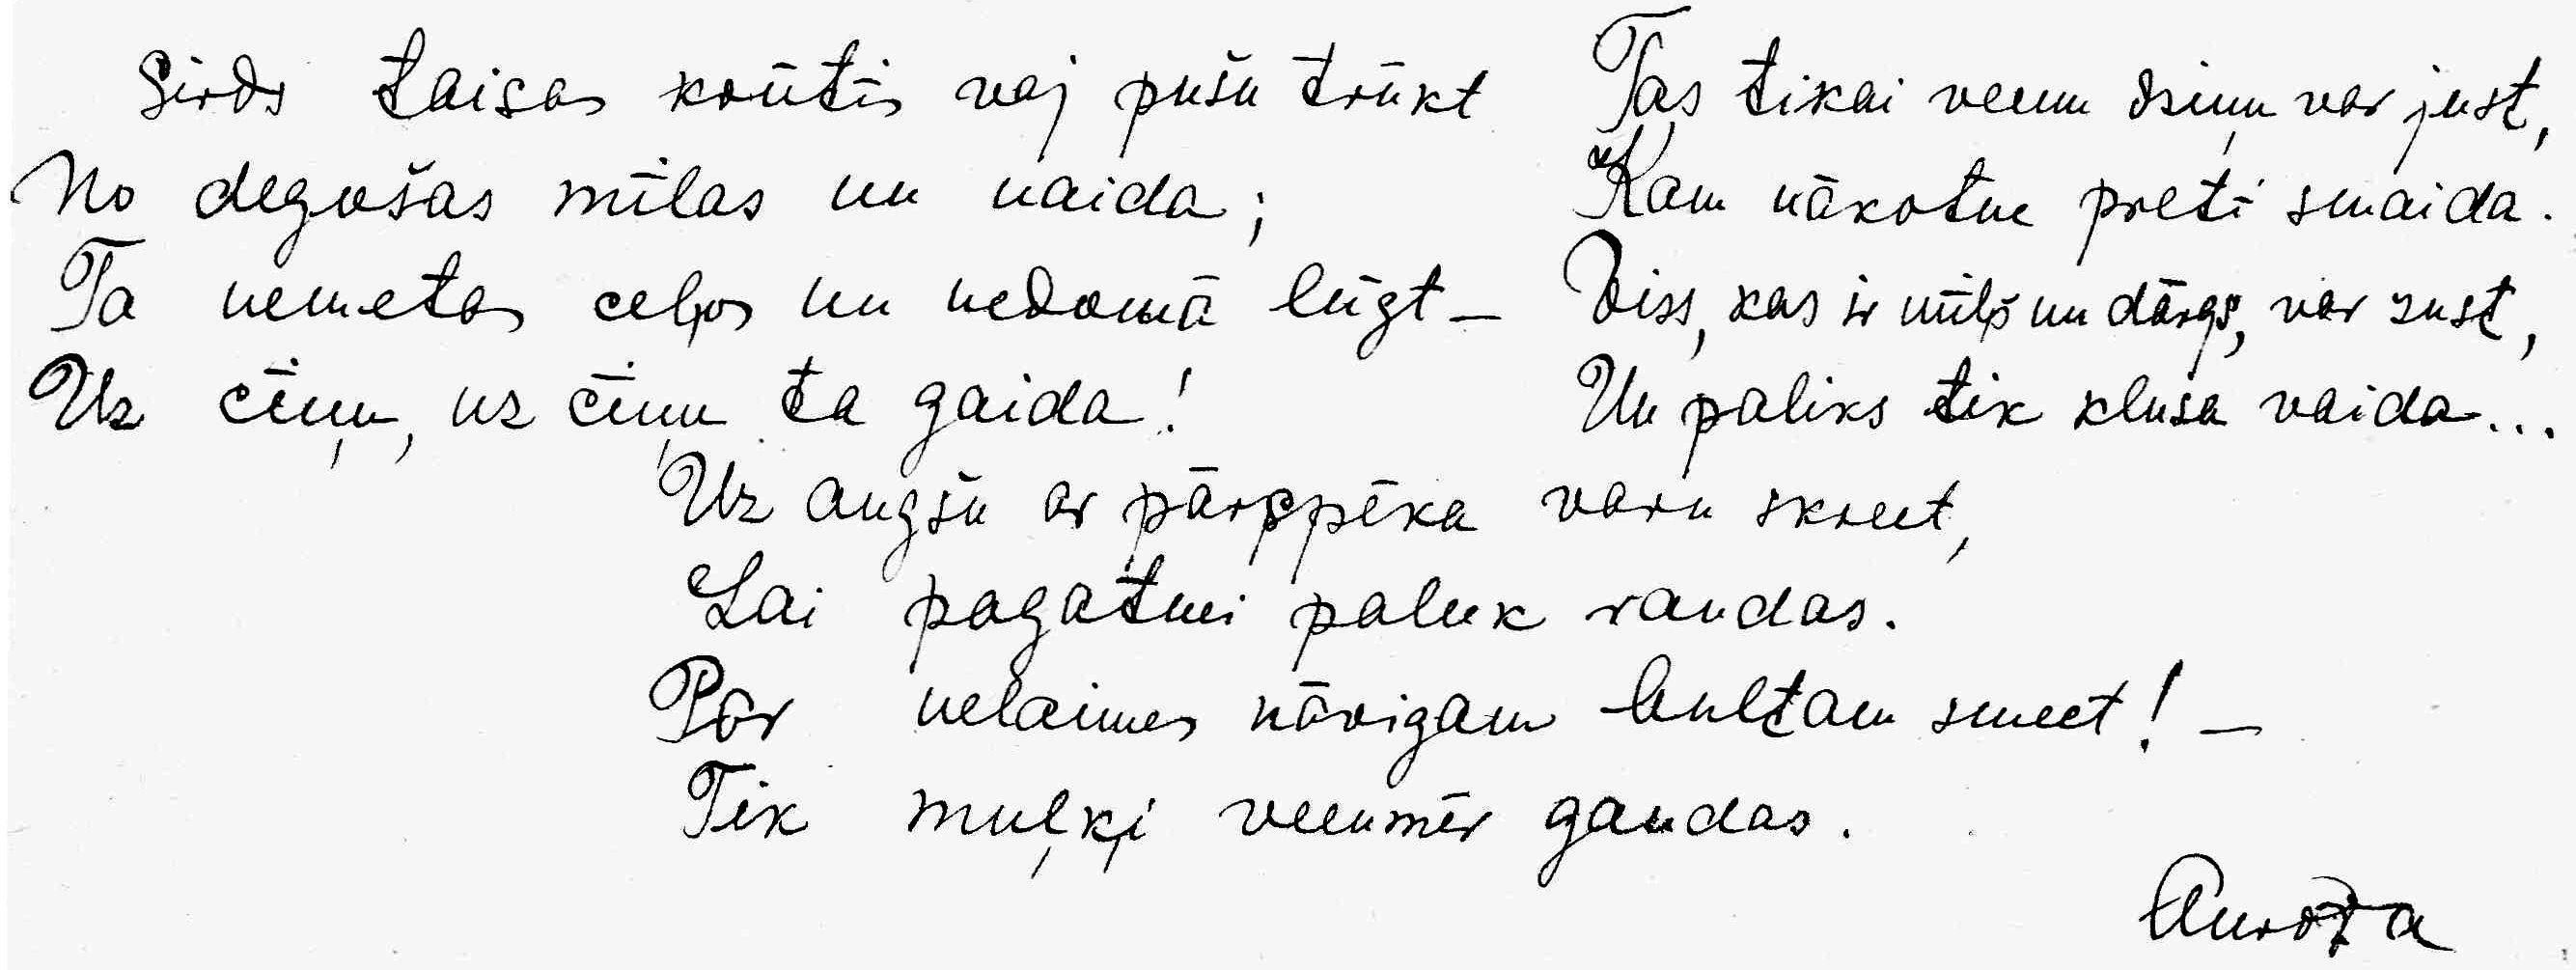 Sirds taisas krūtīs vaj pušu trūkt
No degošas mīlas un naida;
Ta nemetas ceļos un nedomā lūgt –
Uz cīņu, uz cīņu ta gaida!
Tas tikai veenu dziņu var just,
Kam nākotne pretī smaida.
Viss, kas ir mīļš un dārgs, var zust,
Un paliks tik klusa vaida...
Uz augšu ar pārspēka varu skreet,
Lai pagatnei paleek raudas.
Par nelaimes nāvigam bultam smeet! –
Tik muļķi veenmēr gaudas.